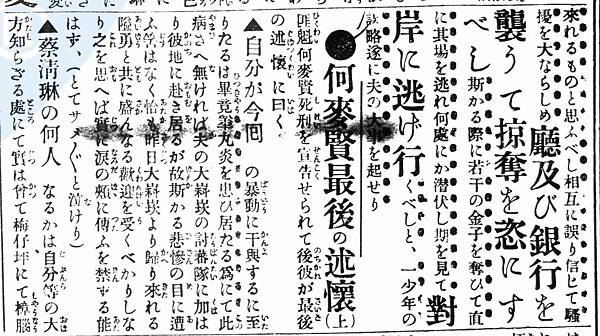 來れるものと思ふべし相互に誤り信じて騷
擾を大ならしめ廳及び銀行を
襲うて掠奪を恣にす
べし斯かる際に若干の金子を奪ひて直
に其場を逃れ何處にか潜伏し期を見て對
岸に逃げ行くべしと、一少年の
謀略遂に夫の大事を起せり
●何麥賢最後の述懷(上)
匪魁何麥賢死刑を宣告せられて後彼が最後
の述懷に曰く
▲自分が今回 の暴動に干與するに至
りたるは畢竟睾丸炎を思ひ居たる為にて此
病さへ無ければ夫の大嵙崁の討蕃隊に加は
り彼地に赴き居るが故斯かる悲慘の目に遭
ふ筈はなく恰も昨日大嵙崁より歸り來れる
隘勇と共に盛んなる歡迎を受くべかりしな
り之を思へば實に淚の頰に傳ふを禁ずる能
はず、(とてサメ〲と泣けり)
▲蔡清琳の何人 なるかは自分等の大
方知らざる處にて實は曾て梅仔坪にて樟腦